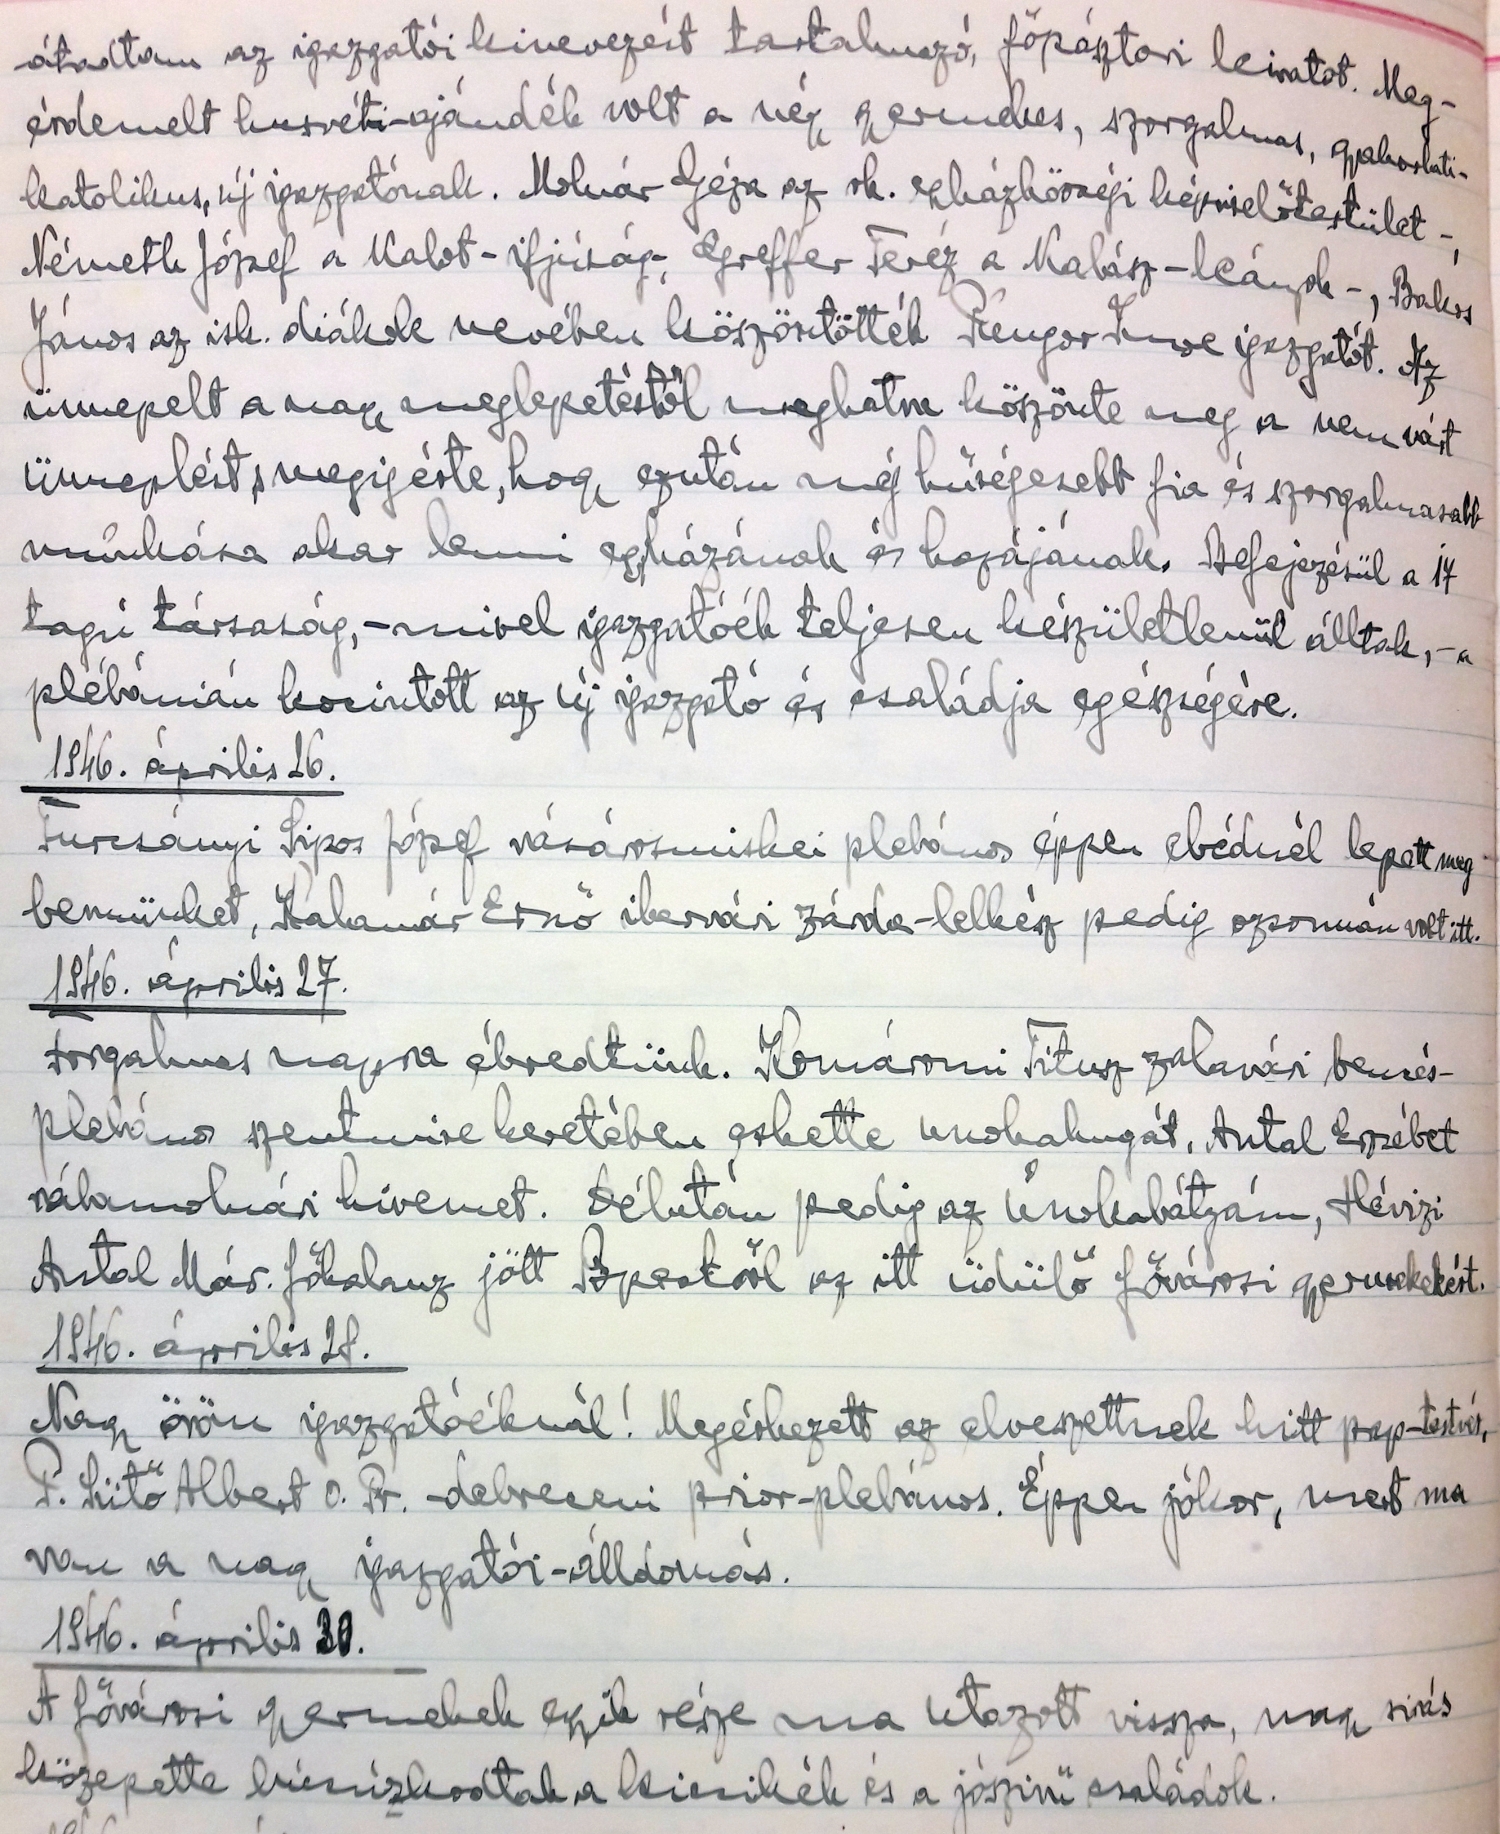 átadtam az igazgatói kinevezést tartalmazó, főpásztori leiratot. Meg-
érdemelt husvéti-ajándék volt a négy gyermekes, szorgalmas, gyakorlati-
katolikus, új igazgatónak. Molnár Géza az rk. egházközségi képviselőtestület -,
Németh József a Kalot-ifjúság-, Greffer Teréz a Kalász-leányok -, Bakos
János az isk. diákok nevében köszöntötték Pengor Imre igazgatót. Az
ünnepelt a nagy meglepetéstől meghatva köszönte meg a nem várt
ünneplést, s megigérte, hogy ezután még hűségesebb fia és szorgalmasabb
munkása akar lenni egyházának és hazájának. Befejezésül a 17
tagú társaság, - mivel igazgatóék teljesen készületlenül álltak, - a
plébánián kocintott az új igazgató és családja egészségére.
1946. április 26.
Turcsányi Sipos József vásárosmiskei plebános éppen ebédnél lepett meg
bennünket, Kalamár Ernő ikervári zárda-lelkész pedig ozsonnán volt itt.
1946. április 27.
Forgalmas napra ébredtünk. Komáromi Titusz zalavári bencés-
plebános szentmise keretében eskette unokahugát, Antal Erzsébet
rábamolnári hivemet. Délután pedig az unokabátyám, Hévizi
Antal Máv. főkalauz jött Bpestről az itt üdülő fővárosi gyermekekért.
1946. április 28.
Nagy öröm igazgatóéknál! Megérkezett az elveszettnek hitt pap-testvér,
P. Sütő Albert O. Pr. -debreceni prior-plebános. Éppen jókor, mert ma
van a nagy igazgatói-álldomás.
1946. április 30.
A fővárosi gyermekek egyik része ma utazott vissza, nagy sirás
közepette búcsúzkodtak a kicsikék és a jószivü családok.